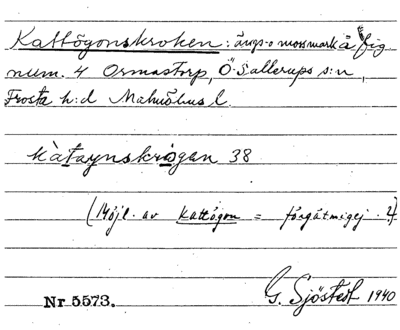 Kattögonskroken: ängs- o mossmark å fig.
num. 4 Ormastorp, Ö. Sallerups s:n,
Frosta h:d Malmöhus l.
38
(Möjl. av kattögon = förgätmigej ?)
G. Sjöstedt 1940
Nr 5573.